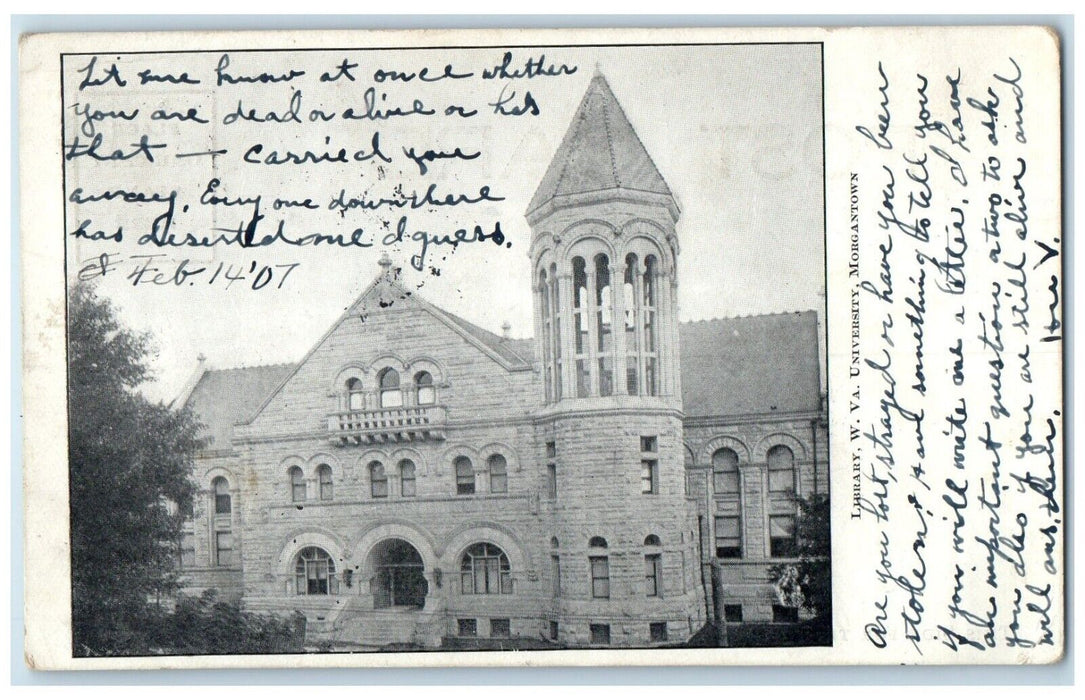 Let me know at once whether
you are dead or alive or has
that — carried you
away, Every one down here
has deserted me I guess.
Feb. 14 '07
LIBRARY, W. VA. UNIVERSITY, MORGANTOWN
Are you lost, strayed or have you been
stolen, I have something to tell you
if you will write me a letter. I have
an important question or two to ask
you also if you are still alive and
will ans. their.